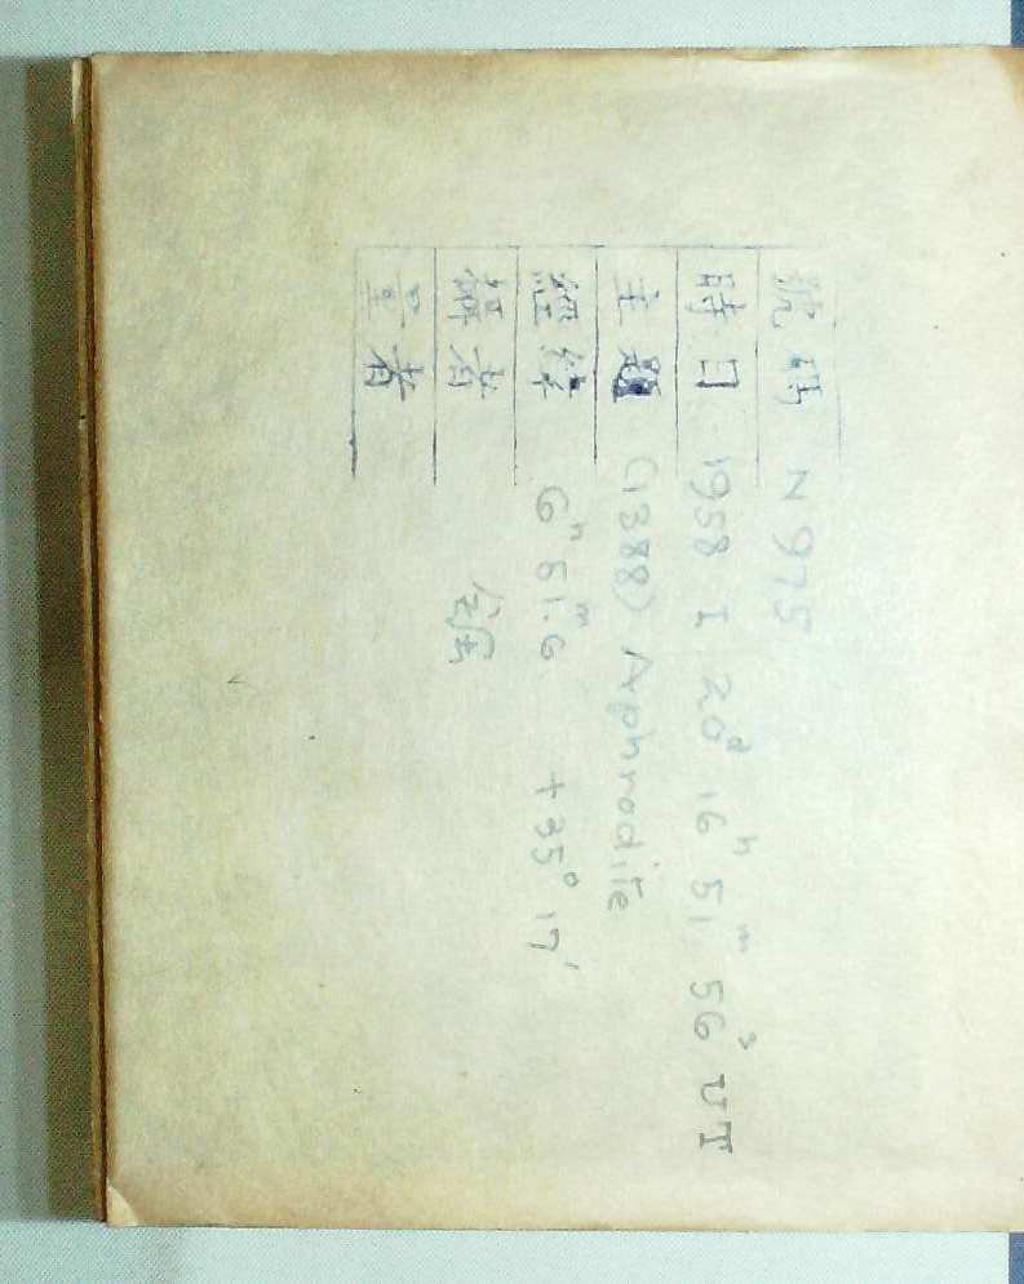 號碼 N 975
時日 1958 I 20ᵈ 16ʰ 51ᵐ 56ˢ UT
主題 (1388) Aphrodite
經緯 6ʰ 51ᵐ.6 +35° 17′
攝者
量者